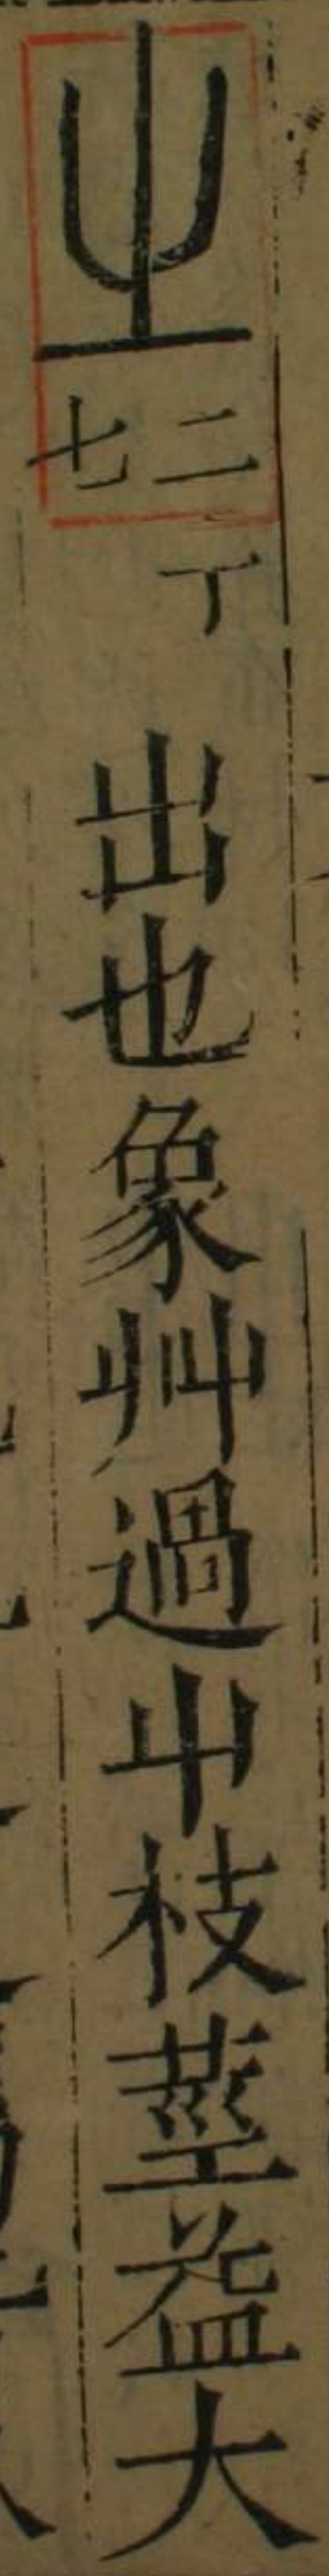 㞢二丁七出也象艸過屮枝莖益大